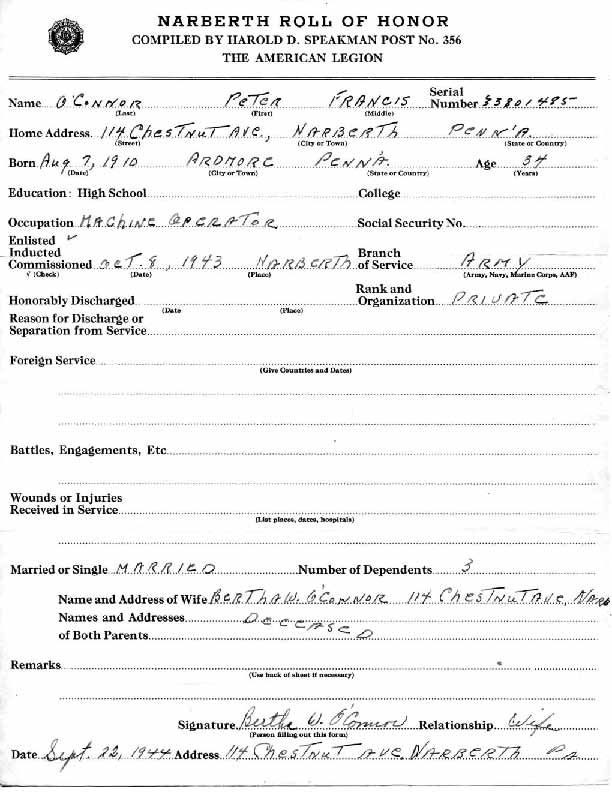 NARBERTH ROLL OF HONOR
COMPILED BY HAROLD D. SPEAKMAN POST No. 356
THE AMERICAN LEGION
Name O'CONNOR PETER FRANCIS Serial Number 33801485
(Last) (First) (Middle)
Home Address 114 CHESTNUT AVE., NARBERTH PENN'A.
(Street) (City or Town) (State or Country)
Born Aug 7, 1910 ARDMORE PENNA. Age 34
(Date) (City or Town) (State or Country) (Years)
Education: High School College
Occupation MACHINE OPERATOR Social Security No.
Enlisted ✓
Inducted Branch
Commissioned OCT. 8, 1943 NARBERTH of Service ARMY
√ (Check) (Date) (Place) (Army, Navy, Marine Corps, AAF)
Rank and
Honorably Discharged Organization PRIVATE
(Date (Place)
Reason for Discharge or
Separation from Service
Foreign Service
(Give Countries and Dates)
Battles, Engagements, Etc
Wounds or Injuries
Received in Service
(List places, dates, hospitals)
Married or Single MARRIED Number of Dependents 3
Name and Address of Wife BERTHA W. O'CONNOR 114 CHESTNUT AVE, NARB
Names and Addresses DECEASED
of Both Parents
Remarks
(Use back of sheet if necessary)
Signature Bertha W. O'Connor Relationship Wife
(Person filling out this form)
Date Sept. 22, 1944 Address 114 CHESTNUT AVE. NARBERTH Pa